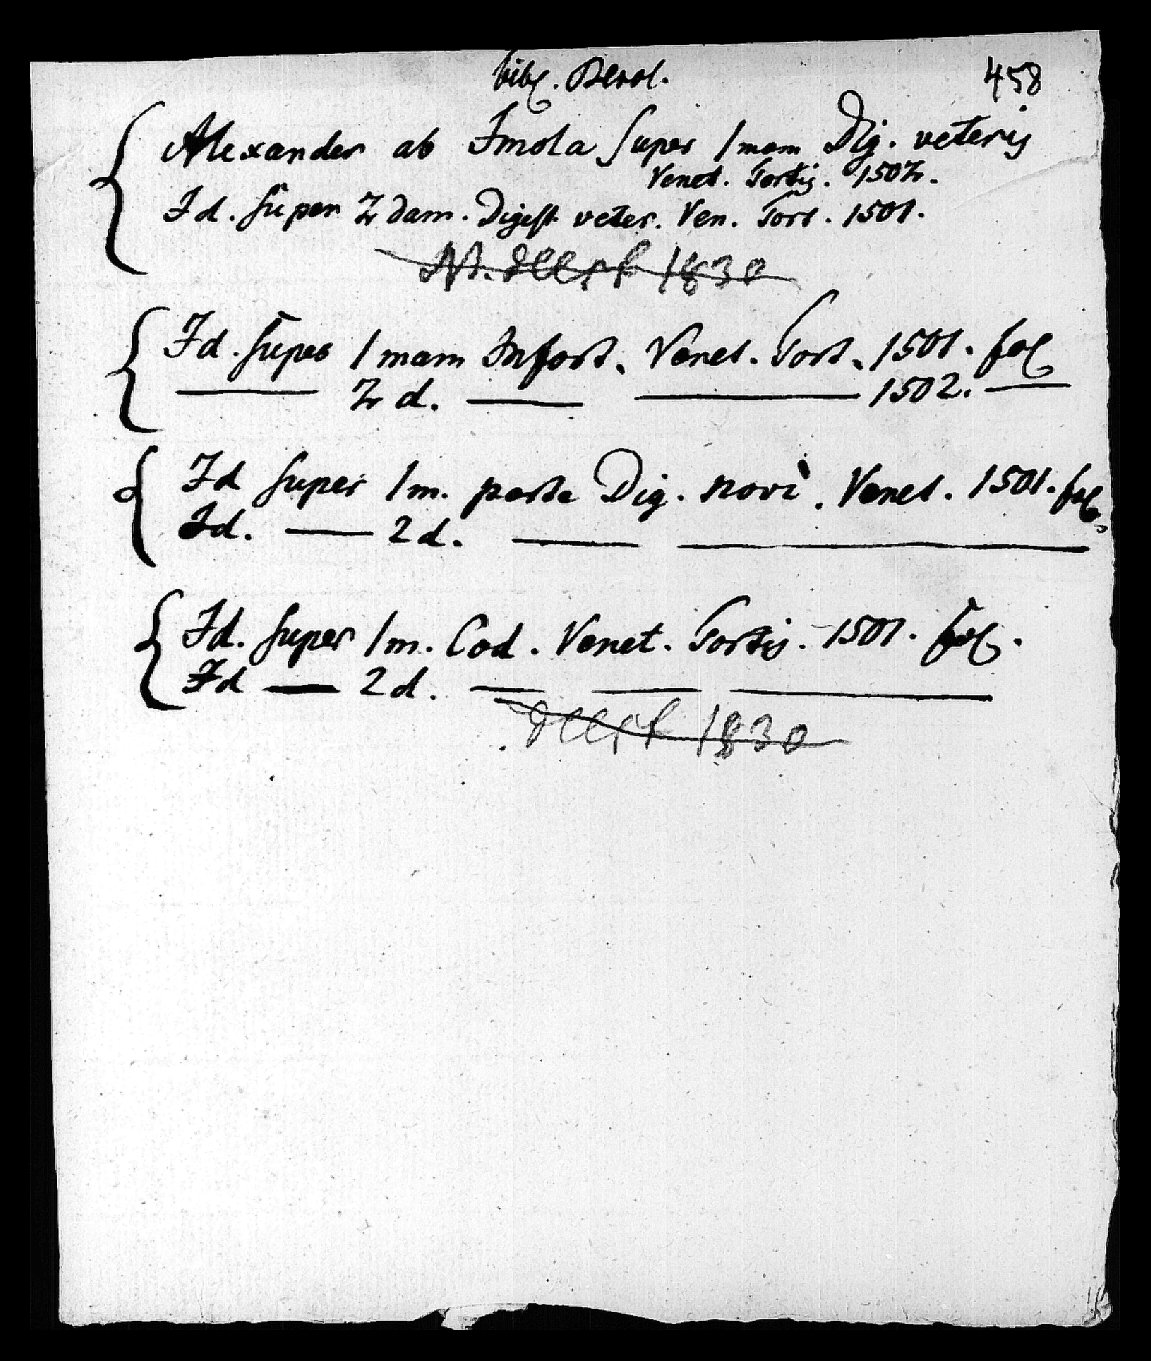 bibl. Berol. 458
Alexander ab Imola super 1mam Dig. veteris
Venet. Tortis. 1502.
Id. super 2dam. Digest veter. Ven. Tort. 1501.
1830
Id. super 1mam Infort. Venet. Tort. 1501. fol
——— 2d. ——— ——— 1502. ———
Id super 1m. parte Dig. novi. Venet. 1501. fol.
Id. ——— 2d. ——— ———
Id. super 1m. Cod. Venet. Tortis. 1501. fol.
Id — 2d. ——— ——— ———
1830